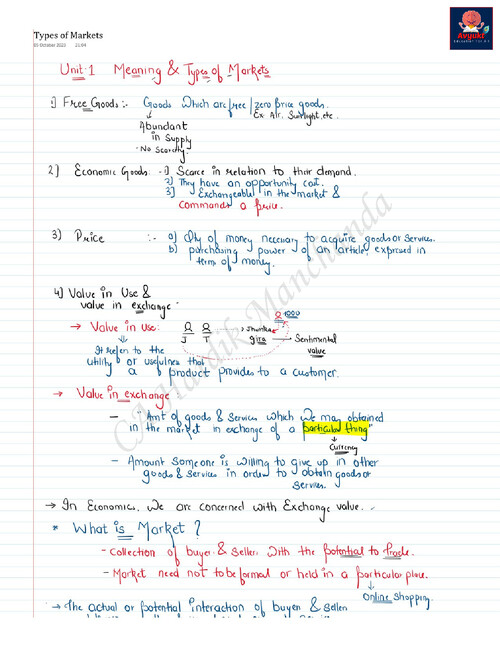 Avyukt
Types of Markets
03 October 2023 21:04
Unit-1 Meaning & Types of Markets
1) Free Goods :- Goods which are free/zero price goods.
Ex. Air, Sunlight, etc.
Abundant
in Supply
- No Scarcity
2) Economic Goods: - 1) Scarce in relation to their demand.
2) They have an opportunity cost.
3) Exchangeable in the market &
commands a price.
3) Price :- a) Qty of money necessary to acquire goods or services.
b) purchasing power of an article expressed in
term of money.
4) Value in Use &
value in exchange
1000
→ Value in use:
J T
Jhumka
gira → Sentimental
value
It refers to the
utility or usefulness that
a product provides to a customer.
→ Value in exchange:
- "Amt of goods & services which we may obtained
in the market in exchange of a particular thing"
Currency
- Amount someone is willing to give up in other
goods & services in order to obtain goods or
services.
→ In Economics, We are concerned with Exchange value.
* What is Market?
- Collection of buyer & Seller with the potential to trade.
- Market need not to be formal or held in a particular place.
Online Shopping.
→ The actual or potential interaction of buyer & seller
CA Hardik Manchanda